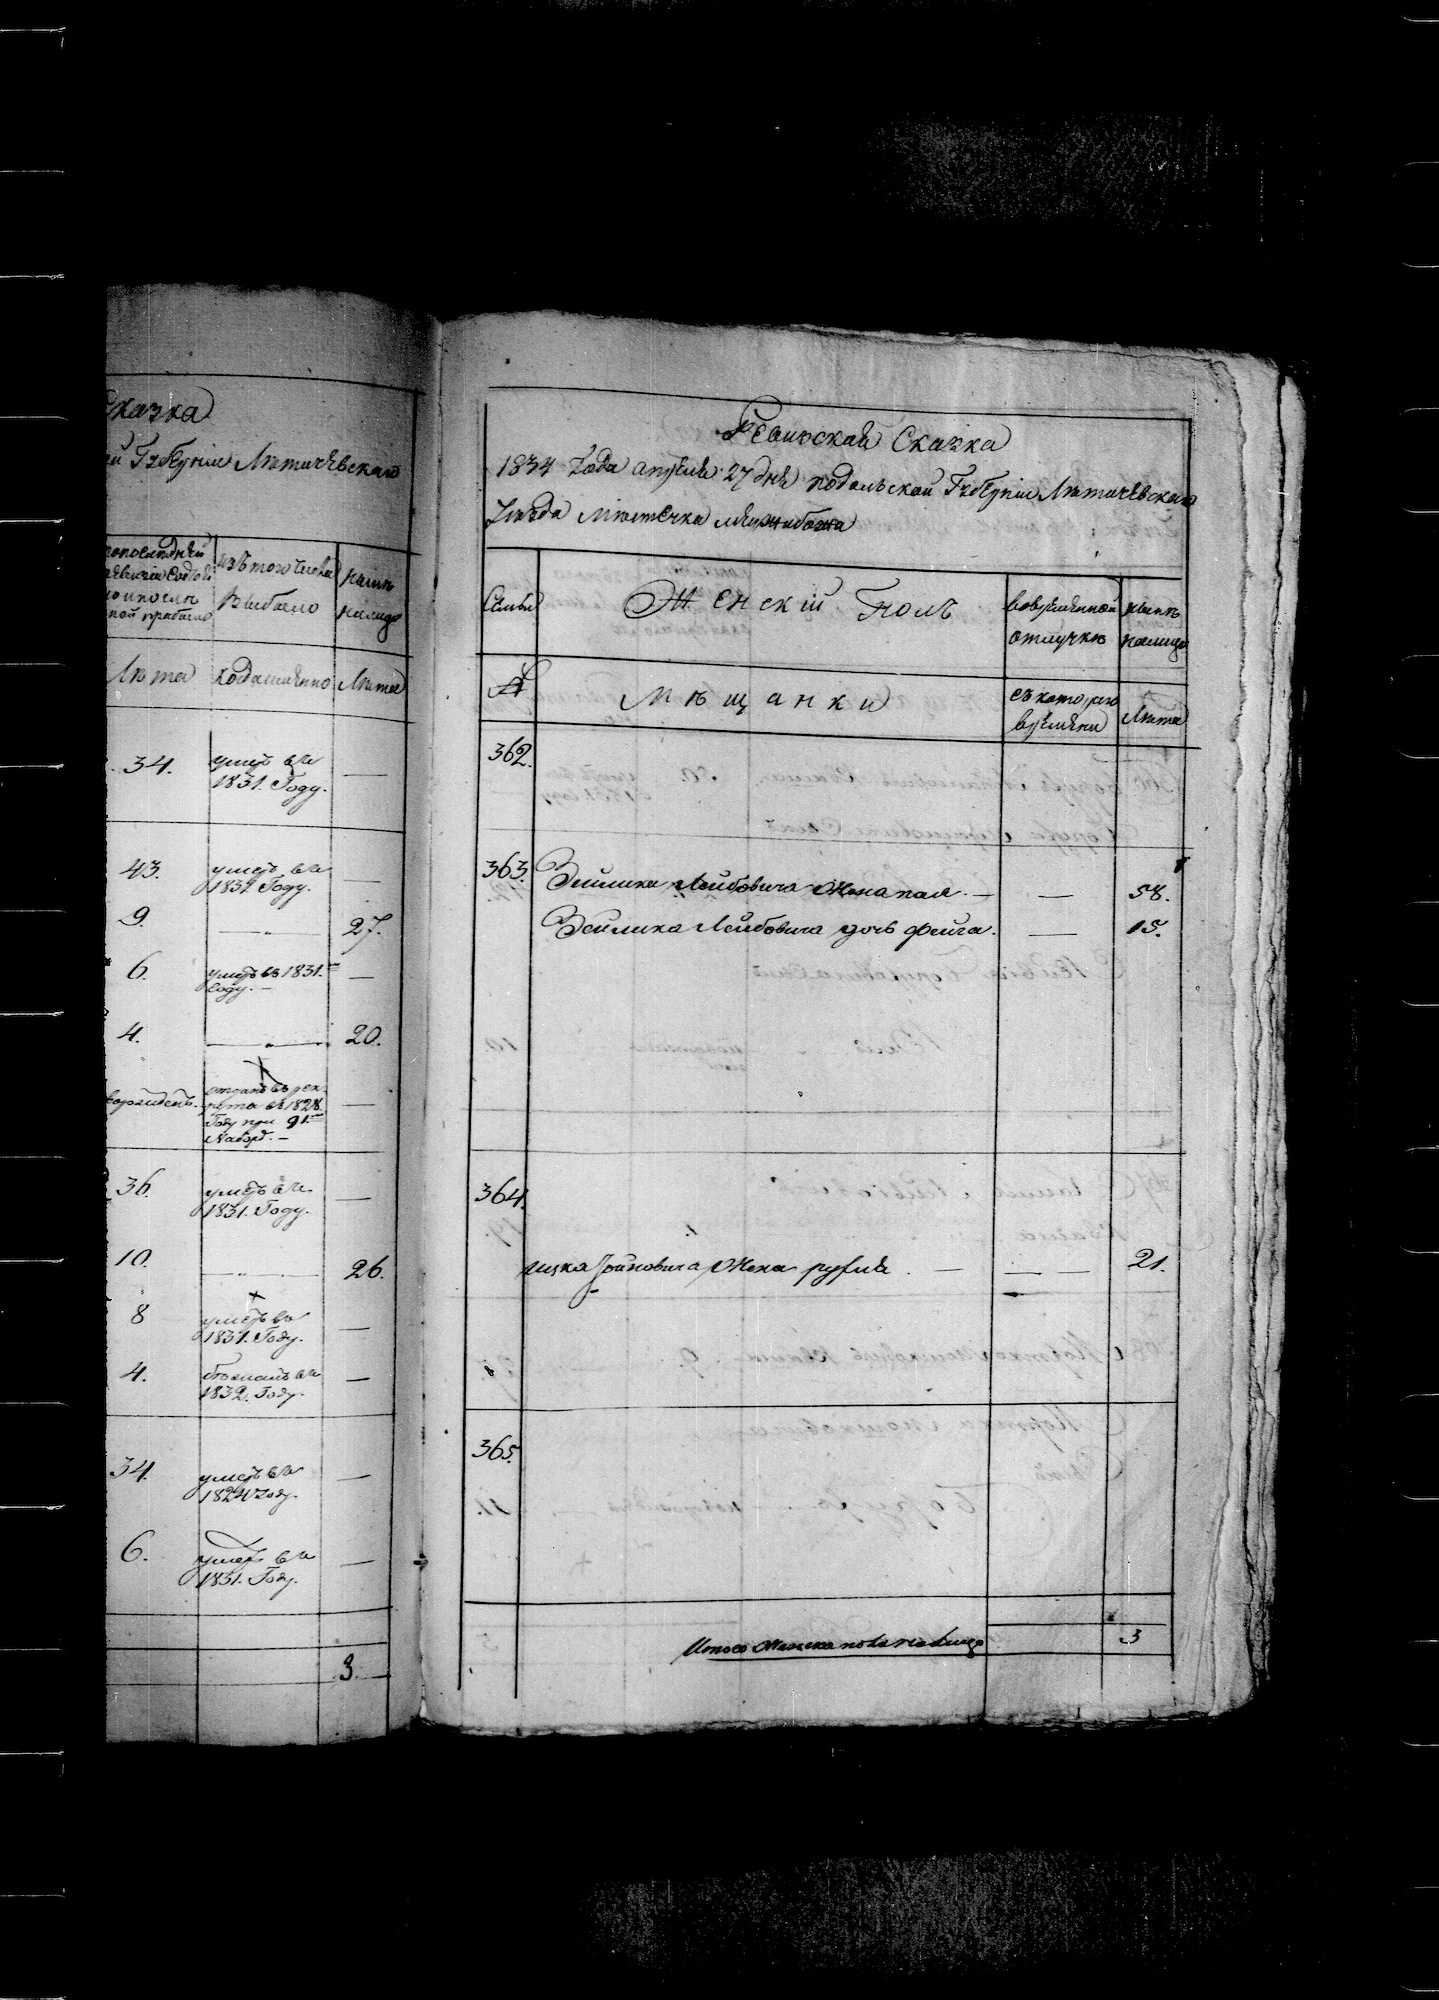 Сказка
Губерніи Летичевскаго
изъ того числа
выбыло
ныне
налицо
Лета
когда имянно
Лета
34.
умеръ въ
1831. Году.
—
43.
умеръ въ
1832. Году.
—
9.
27.
6.
умеръ въ 1831.
Году. —
—
4.
20.
отданъ въ рек
рута въ 1828
Году при 91.
Наборе. —
—
36.
умеръ въ
1831. Году.
—
10.
26.
8
умеръ въ
1831. Году.
—
4.
въ
1832. Году.
—
34.
умеръ въ
1824 году.
—
6.
умеръ въ
1831. Году.
—
3.
Ревизская Сказка
1834 Года апреля 27 дня подольской Губерніи Летичевскаго
Уезда местечка межибожа
Семьи
Женскій полъ
вовременной
отлучке
ныне
налицо
№
Мещанки
съ котораго
времени
Лета
362.
363.
Зейлика Лейбовича Жена пая. —
—
58.
Зейлика Лейбовича дочь фейга.
—
15.
364.
ицка Жена рухля. —
—
21.
365.
Итого Женска пола налицо
3